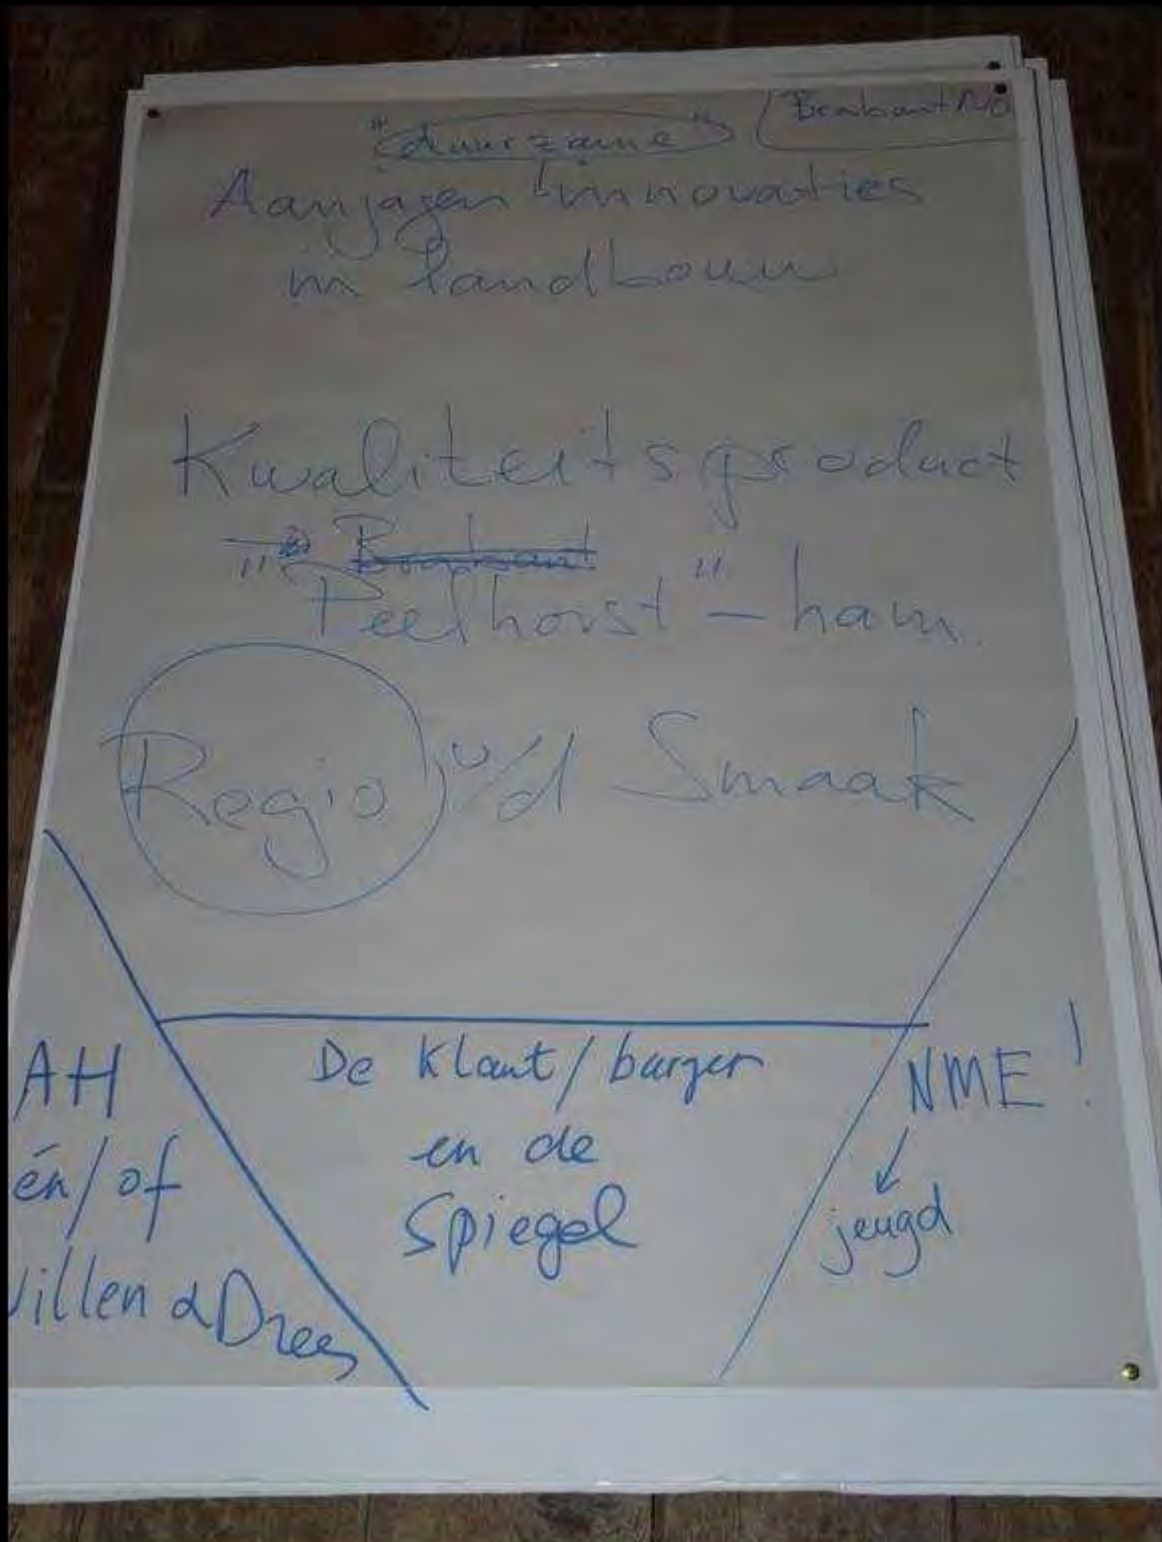 "duurzame"
Brabant NO
Aanjagen innovaties
in landbouw
Kwaliteitsproduct
→ Brabant
"Peelhorst" - ham.
Regio v/d Smaak
AH
én/of
Willem & Drees
De Klant/burger
en de
Spiegel
NME!
↓
jeugd